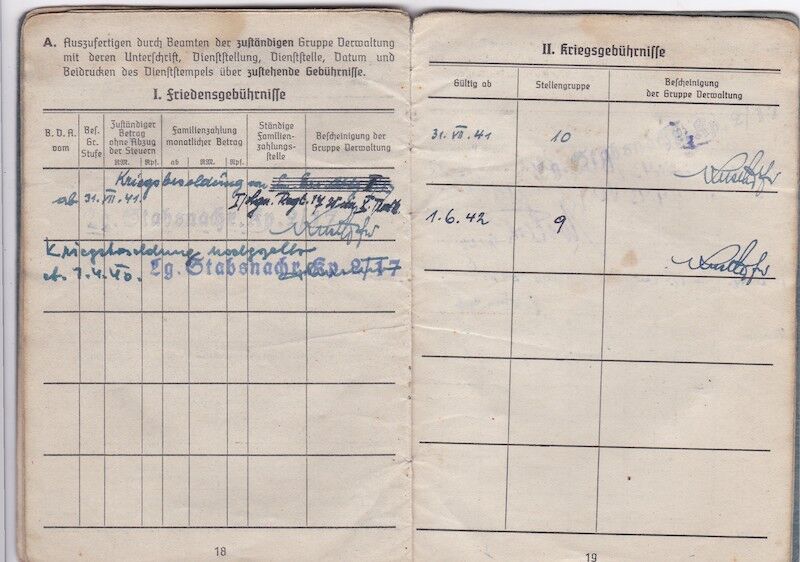 A. Auszufertigen durch Beamten der zuständigen Gruppe Verwaltung
mit deren Unterschrift, Dienststellung, Dienststelle, Datum und
Beidrucken des Dienststempels über zustehende Gebührnisse.
I. Friedensgebührnisse
B. D. A. vom
Bes. Gr. Stufe
Zuständiger Betrag ohne Abzug der Steuern
RM. Rpf.
Familienzahlung monatlicher Betrag
ab RM. Rpf.
Ständige Familien-zahlungs-stelle
Bescheinigung der Gruppe Verwaltung
Kriegsbesoldung
ab 31. VII. 41.
Kriegsbesoldung
Lg. Stabsnachr. Kp. 2/17
18
II. Kriegsgebührnisse
Gültig ab
Stellengruppe
Bescheinigung
der Gruppe Verwaltung
31. VII. 41 10
1. 6. 42 9
19